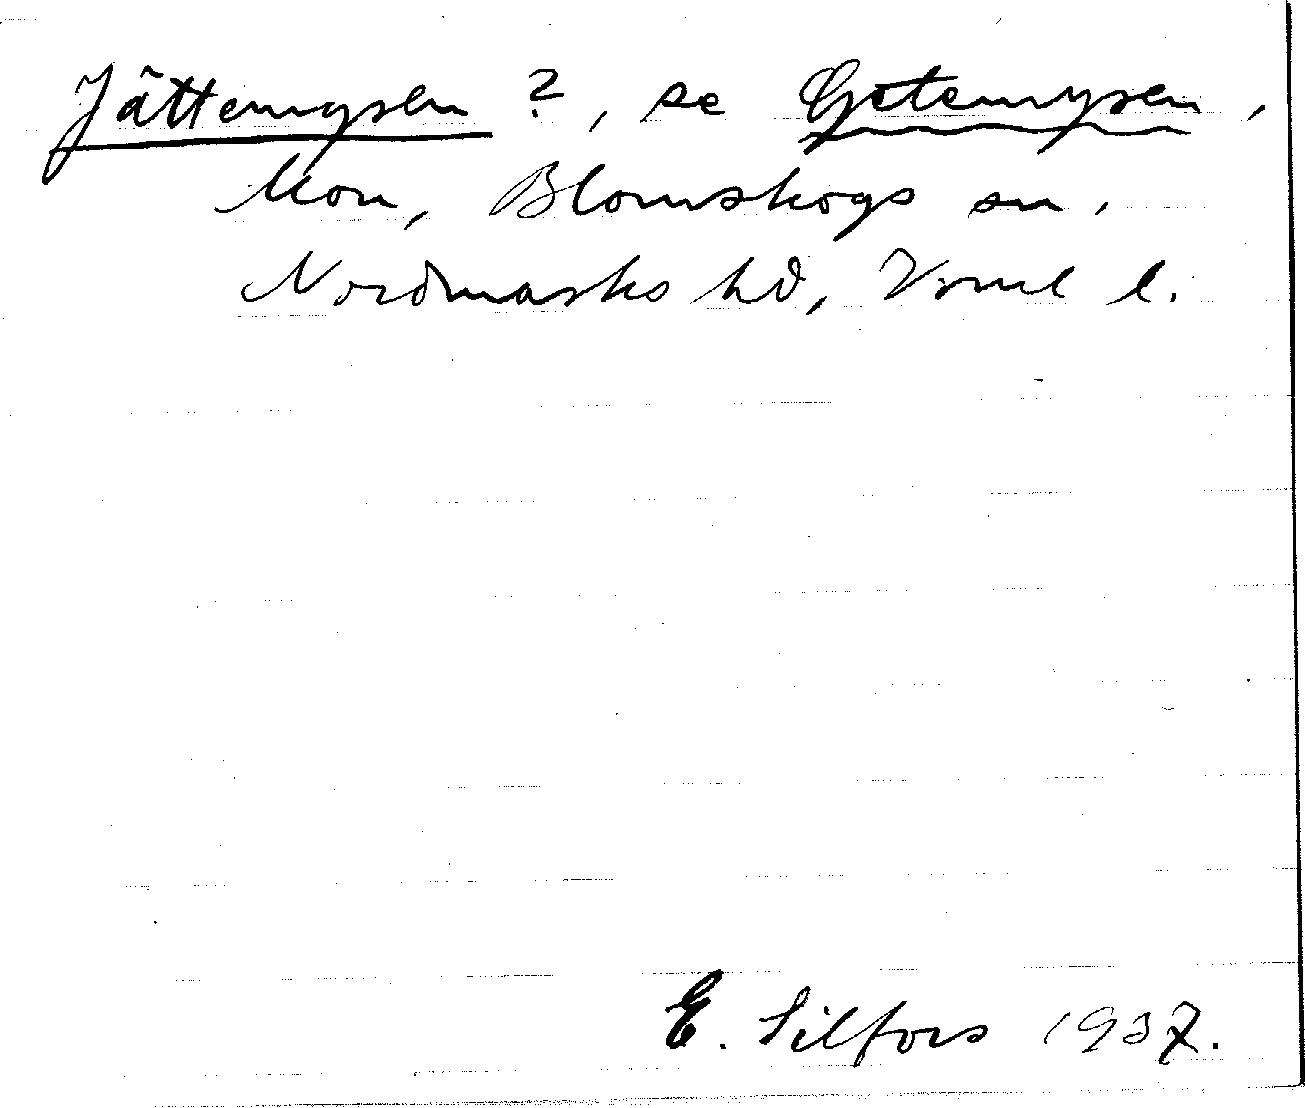 Jättemysen ?, se Getemysen,
Mon, Blomskogs sn,
Nordmarks hd, Vrml l.
E. Silfors 1937.